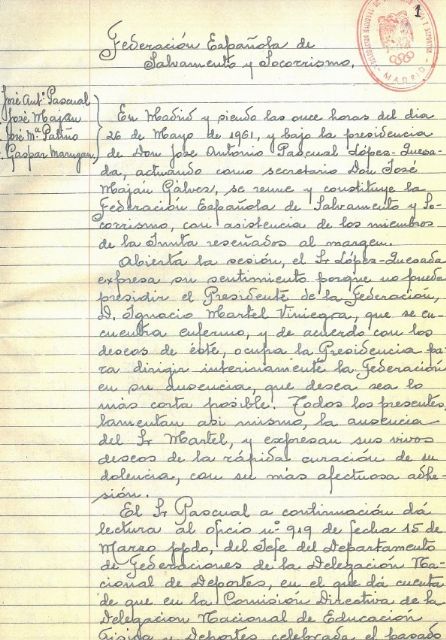 1
Federación Española de
Salvamento y Socorrismo.
MADRID
José Antº Pascual
José Maján
José Mª Patiño
Gaspar Marugan
En Madrid y siendo las once horas del día
26 de Mayo de 1961, y bajo la presidencia
de Don José Antonio Pascual López-Quesa-
da, actuando como secretario Don José
Maján Gálvez, se reune y constituye la
Federación Española de Salvamento y So-
corrismo, con asistencia de los miembros
de la Junta reseñados al margen.
Abierta la sesión, el Sr López-Quesada
expresa su sentimiento porque no pueda
presidir el Presidente de la Federación,
D. Ignacio Martel Viniegra, que se en-
cuentra enfermo, y de acuerdo con los
deseos de éste, ocupa la Presidencia pa-
ra dirigir interinamente la Federación
en su ausencia, que desea sea lo
más corta posible. Todos los presentes
lamentan asi mismo, la ausencia
del Sr Martel, y expresan sus vivos
deseos de la rápida curación de su
dolencia, con su más afectuosa adhe-
sión.
El Sr Pascual a continuación dá
lectura al oficio nº 919 de fecha 15 de
Marzo ppdo, del Jefe del Departamento
de Federaciones de la Delegación Na-
cional de Deportes, en el que dá cuenta
de que en la Comisión Directiva de la
Delegación Nacional de Educación
Física y Deportes celebrada el pasado